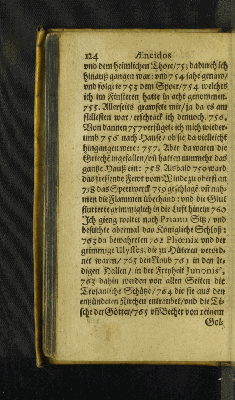 124 Æneidos
und dem heimlichen Thore/753 dadurch ich
hinauß gangen war: und 754 sahe genaw/
und folgete 753 dem Spoer/754 welches
ich im Finsteren hatte in acht genommen.
755. Allerseits grawsete mir/ja da es am
stillesten war/erschrack ich dennoch. 756.
Von dannen 757 verfügete ich mich wieder-
umb 756 nach Hause/ob sie da vielleicht
hingangen were: 757. Aber da waren die
Griechē ingefallen/uñ hatten nunmehr das
gantze Hauß ein: 758. Alsbald 759 ward
das fressende Fewr vom Winde zu oberst an
758 das Sperrwerck 759 geschlagē uñ nah-
men die Flammen überhand: und die Glut
sturtzete grimmiglich in die Luft hinein 760
Ich gieng weiter nach Priami Sitz/ und
besuchte abermal das Königliche Schloß:
763 da bewahreten 762 Phœnix und der
grimmige Ulysses, die zu Hütern verord-
net waren/763 den Raub 761 in den le-
digen Hallen/in der Freyheit Junonis/
763 dahin worden von allen Seiten die
Trojanische Schätze/764 die sie aus den
entzündeten Kirchen entraubet/und die Ti-
sche der Götter/765 uñ Becher von reinem
Gol-